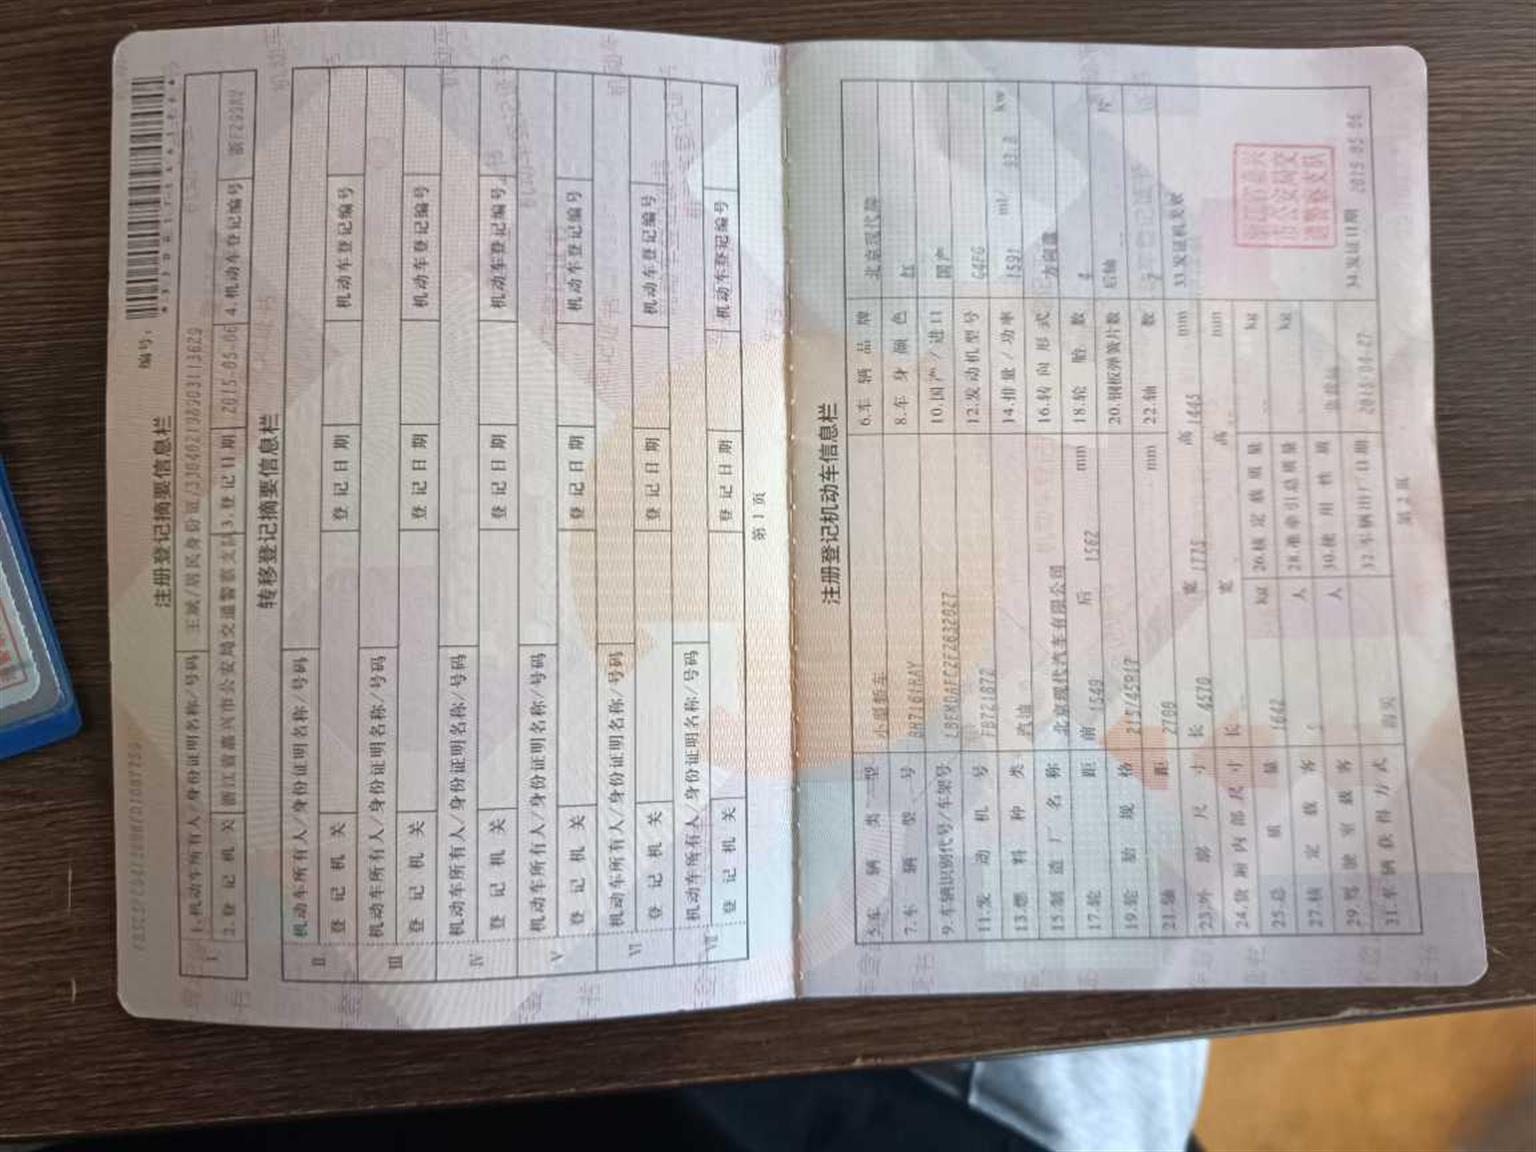 编号：
注册登记摘要信息栏
I 1.机动车所有人/身份证明名称/号码 王斌/居民身份证/330402198903113629
2.登记机关 浙江省嘉兴市公安局交通警察支队 3.登记日期 2015-05-06 4.机动车登记编号
转移登记摘要信息栏
II 机动车所有人/身份证明名称/号码
登记机关 登记日期 机动车登记编号
III 机动车所有人/身份证明名称/号码
登记机关 登记日期 机动车登记编号
IV 机动车所有人/身份证明名称/号码
登记机关 登记日期 机动车登记编号
V 机动车所有人/身份证明名称/号码
登记机关 登记日期 机动车登记编号
VI 机动车所有人/身份证明名称/号码
登记机关 登记日期 机动车登记编号
VII 机动车所有人/身份证明名称/号码
登记机关 登记日期 机动车登记编号
第 1 页
注册登记机动车信息栏
5.车辆类型 小型轿车 6.车辆品牌 北京现代牌
7.车辆型号 BH7161RAY 8.车身颜色 红
9.车辆识别代号/车架号 10.国产/进口 国产
11.发动机号 FB721872 12.发动机型号 G4FG
13.燃料种类 汽油 14.排量/功率 1591 ml/ kw
15.制造厂名称 北京现代汽车有限公司 16.转向形式 方向盘
17.轮距 前 1549 后 1562 mm 18.轮胎数 4
19.轮胎规格 215/45R17 20.钢板弹簧片数 后轴 片
21.轴距 2700 mm 22.轴数 2
23.外廓尺寸 长 4570 宽 1775 高 1445 mm 33.发证机关章
24.货厢内部尺寸 长 宽 高 mm
浙江省嘉兴
市公安局交
通警察支队
25.总质量 1642 kg 26.核定载质量 kg
27.核定载客 人 28.准牵引总质量 kg
29.驾驶室载客 人 30.使用性质
31.车辆获得方式 购买 32.车辆出厂日期 2015-04-27 34.发证日期 2015-05-06
第 2 页